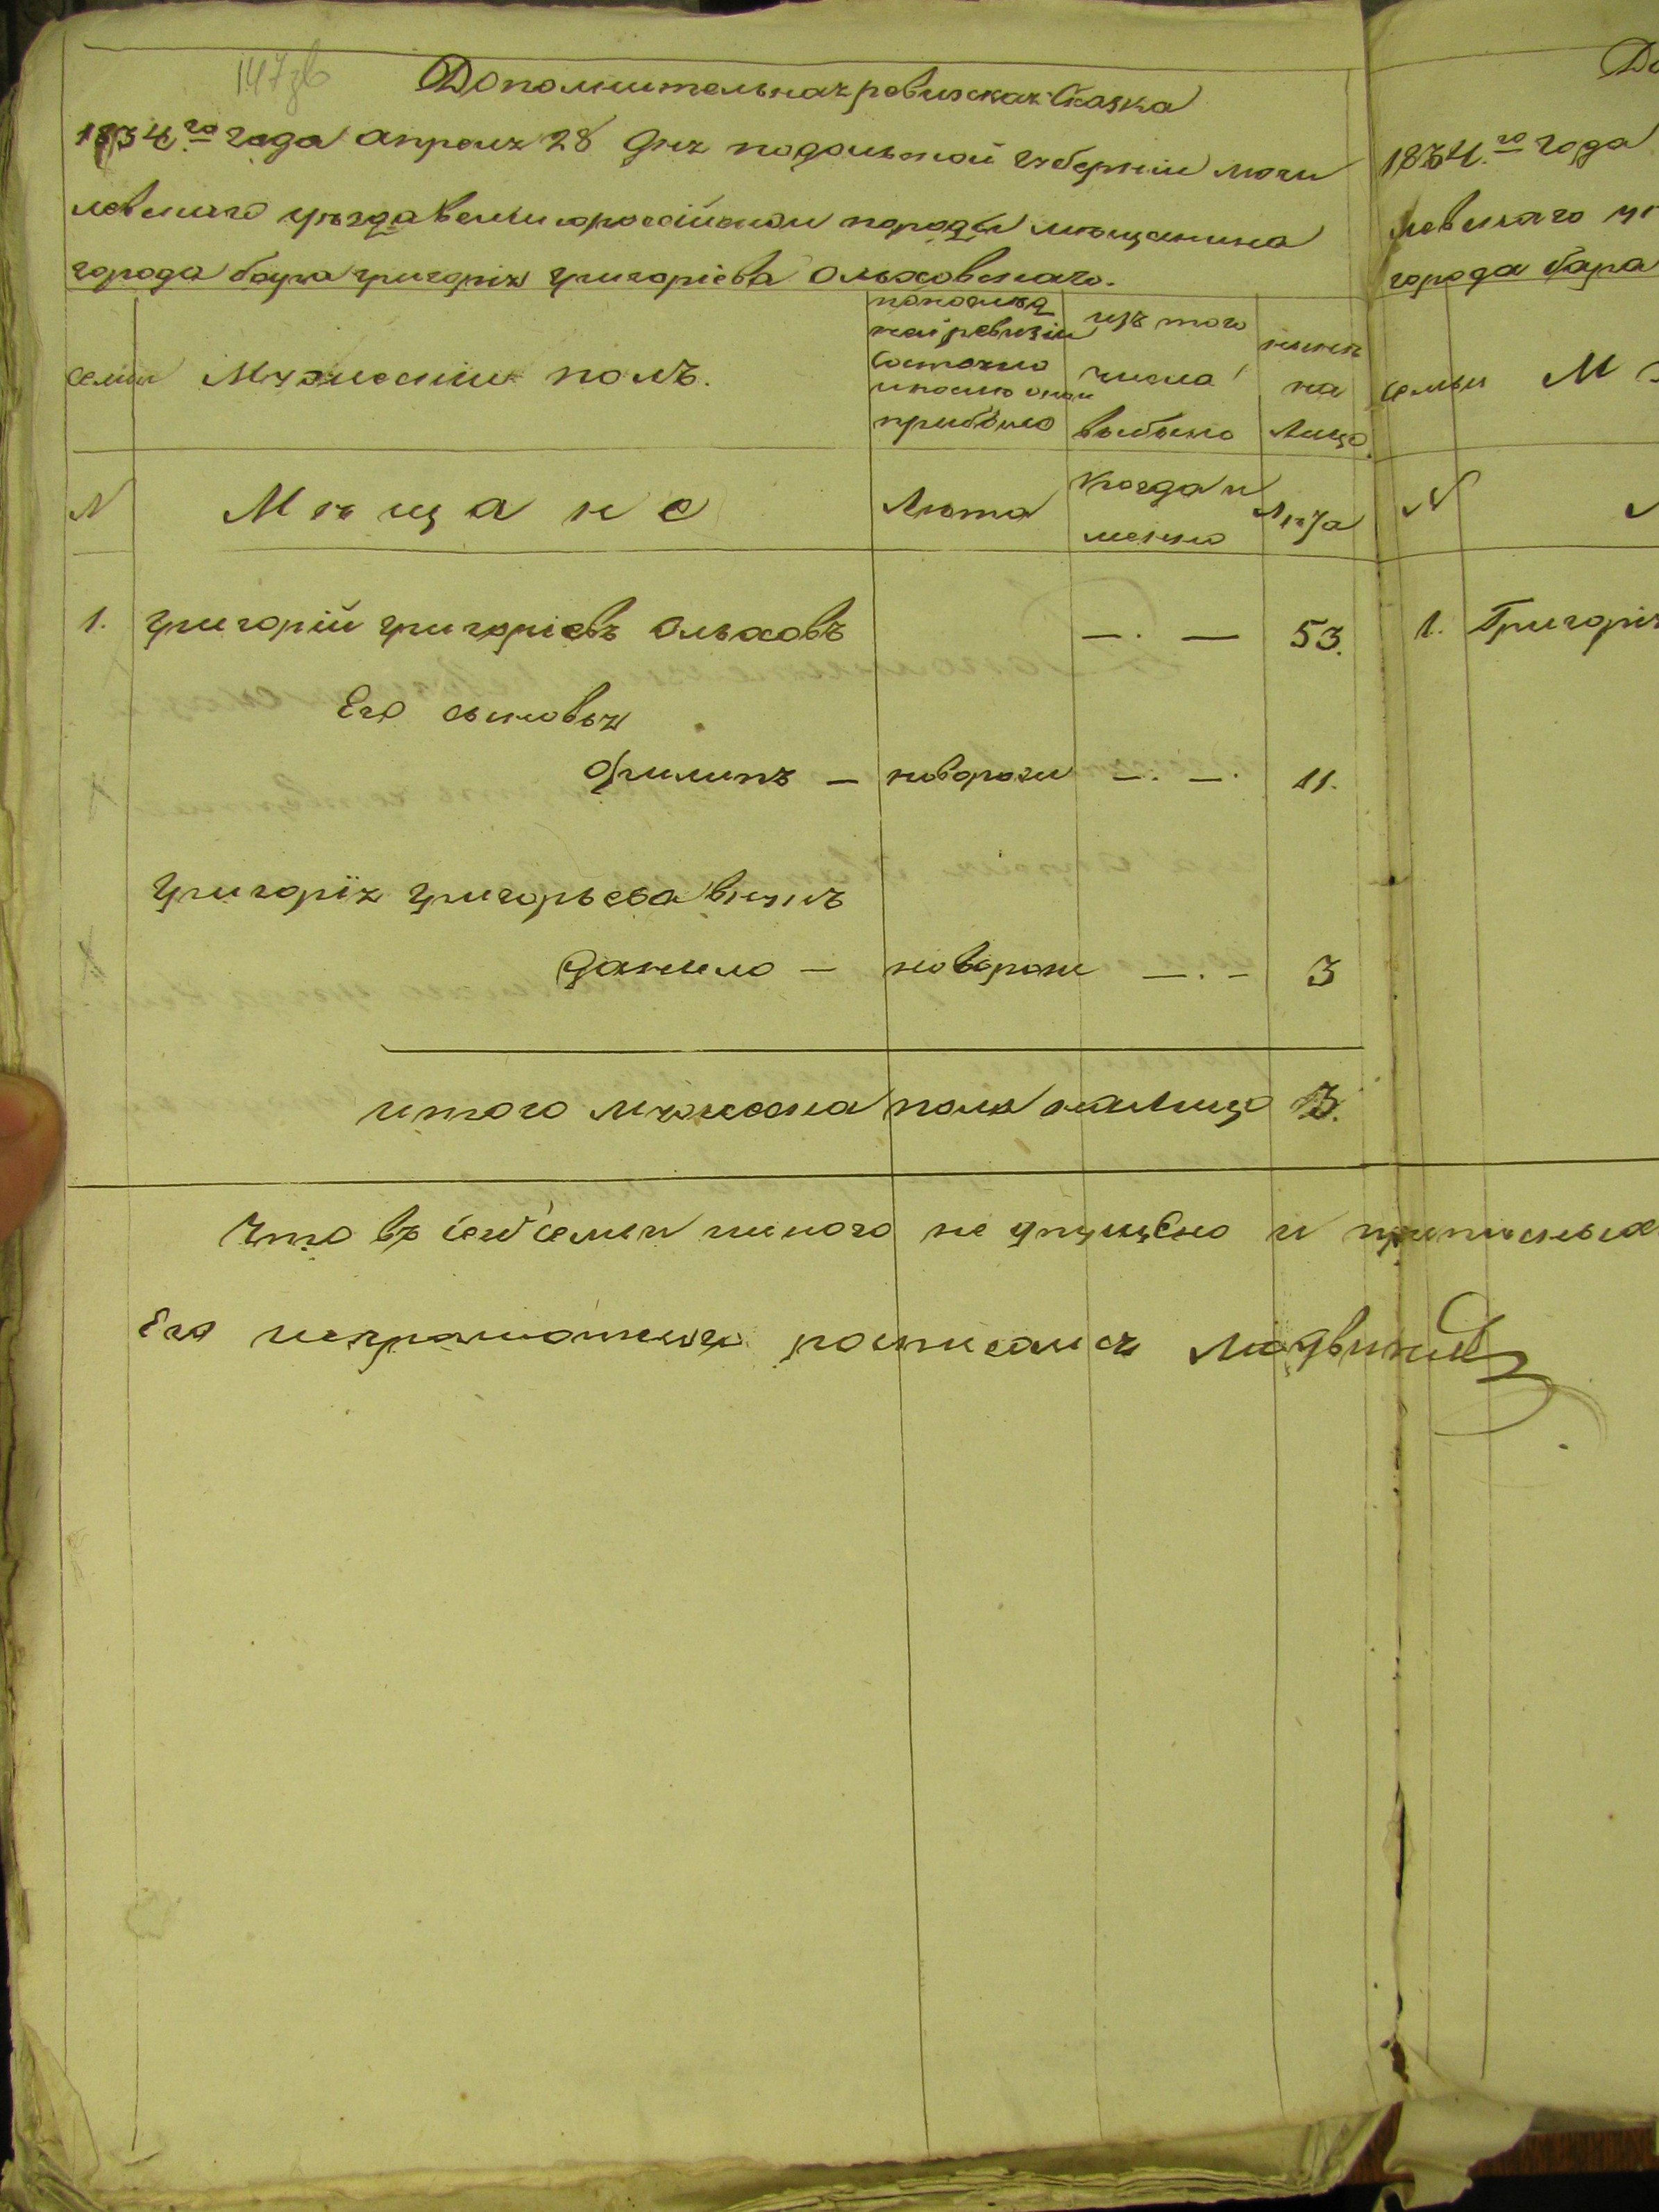 147зв
Дополнительная ревизская Сказка
1834.го года апреля 28 дня подольской губернии моги
левскаго уѣзда великороссийской породы мѣщанина
города бара григорія григоріева Ольховскаго.
семьи Мужескій полъ.
по последн
ней ревизіи
состояло
и после оной
прибыло
изъ того
числа
выбыло
нынѣ
на
лицо
N Мѣщане Лѣта
Когда и
менно
Лѣта
1. григорій григоріевъ Ольховъ —. — 53.
Его сыновья
Филипъ — новорож —. —. 11.
григорія григорьева внукъ
данило — новорож —. – 3
итого мужеска пола налицо 3.
Что въ сей семьи никого не упущено и прописных
Его неграмотнаго росписался
До
1834.го года
левскаго уѣ
города бара
семьи М
N
1. Григорія